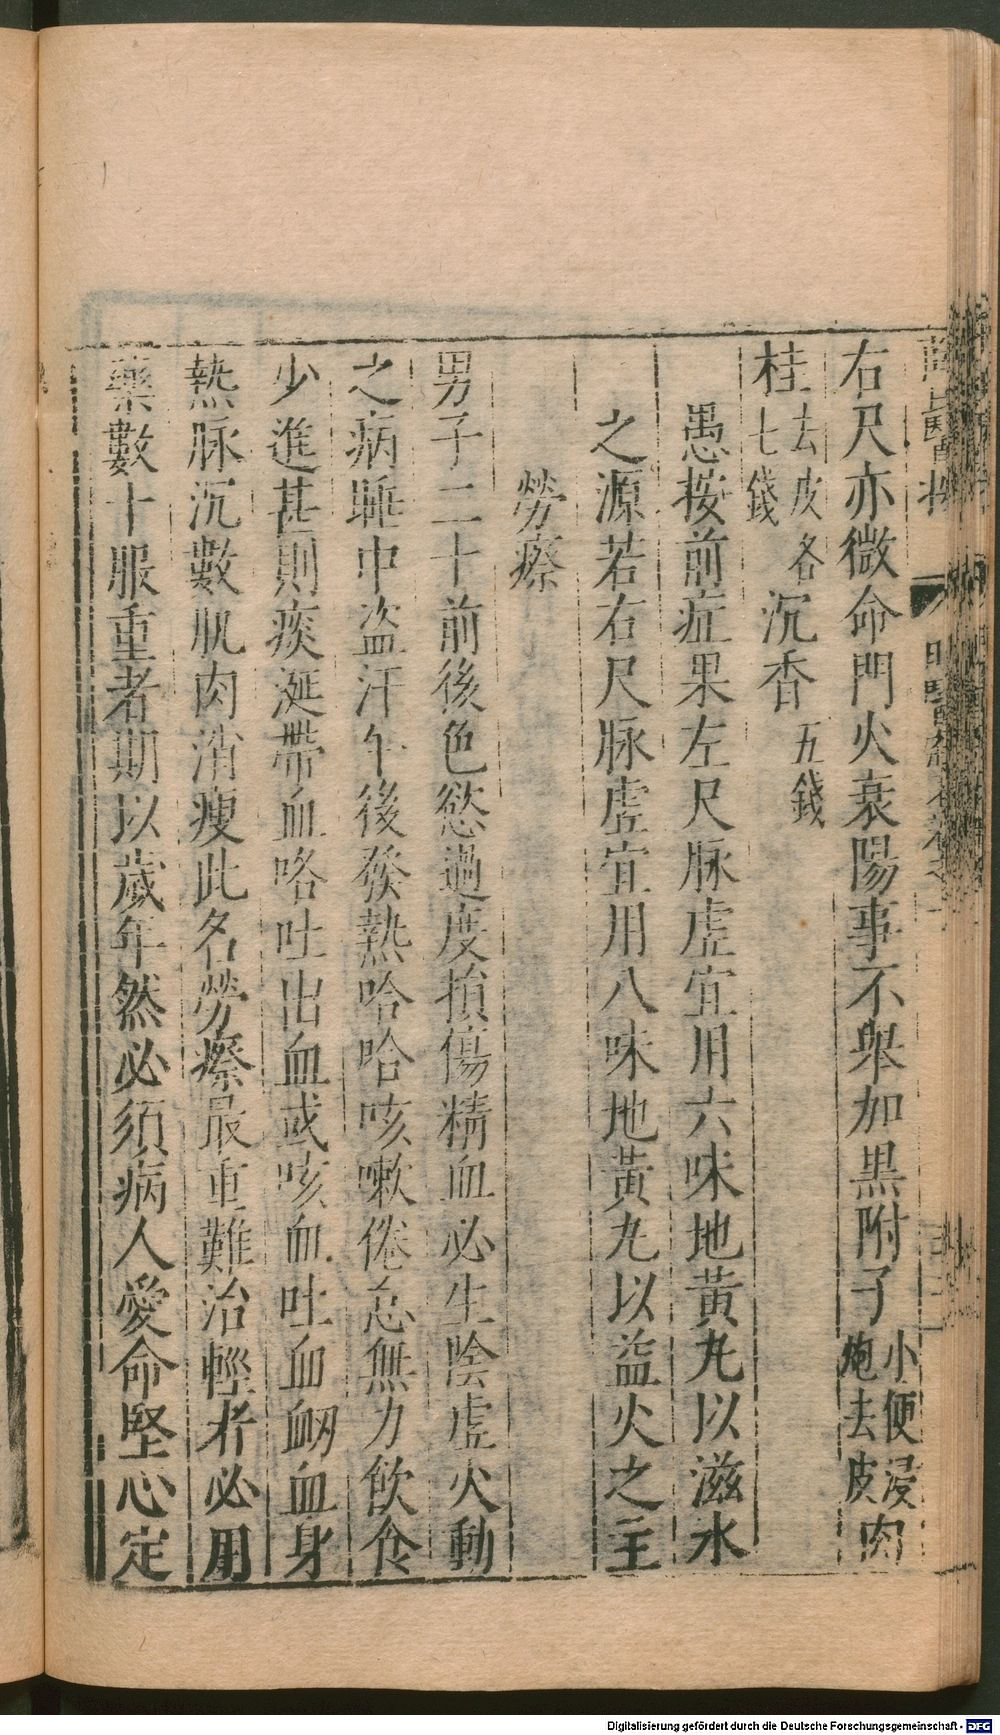 右尺亦微命門火衰陽事不舉加黑附子小便浸炮去皮肉
桂去皮各七錢沉香五錢
愚按前症果左尺脉虛宜用六味地黃丸以滋水
之源若右尺脉虛宜用八味地黃丸以益火之主
勞瘵
男子二十前後色慾過度損傷精血必生陰虛火動
之病睡中盜汗午後發熱哈哈咳嗽倦怠無力飲食
少進甚則痰涎帶血咯吐出血或咳血吐血衂血身
熱脉沉數肌肉消瘦此名勞瘵最重難治輕者必用
藥數十服重者期以歲年然必須病人愛命堅心定
Digitalisierung gefördert durch die Deutsche Forschungsgemeinschaft - DFG